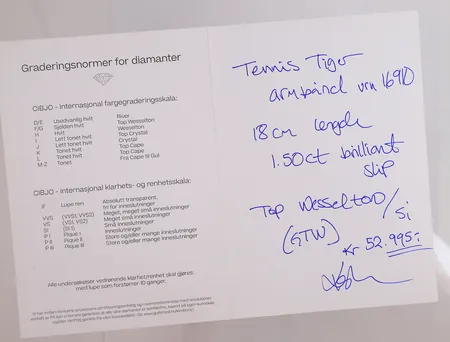 Graderingsnormer for diamanter
CIBJO - internasjonal fargegraderingsskala:
D/E Usedvanlig hvit River
F/G Sjelden hvit Top Wesselton
H Hvit Wesselton
I Lett tonet hvit Top Crystal
J Lett tonet hvit Crystal
K Tonet hvit Top Cape
L Tonet hvit Cape
M-Z Tonet Fra Cape til Gul
CIBJO - internasjonal klarhets- og renhetsskala:
IF Lupe ren Absolutt transparent,
fri for inneslutninger
VVS (VVS1, VVS2) Meget, meget små inneslutninger
VS (VS1, VS2) Meget små inneslutninger
SI (SI 1) Små inneslutninger
P I Pique I Inneslutninger
P II Pique II Store og/eller mange inneslutninger
P III Pique III Store og/eller mange inneslutninger
Alle undersøkelser vedrørende klarhet/renhet skal gjøres
med lupe som forstørrer 10 ganger.
Tennis Tiger
armbånd vrn 1690
18 cm lengde
1.50ct brilliant
slip
Top Wesselton/
Si
(GTW)
Kr 52.995:-